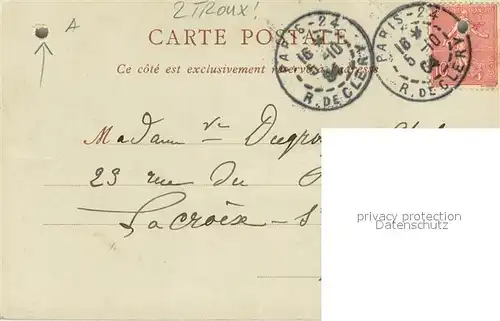 2 Troux!
A
CARTE POSTALE
Ce côté est exclusivement réservé à l'adresse
PARIS-24
16
5-10
R. DE CLERY
PARIS-24
16
5-10
R. DE CLERY
10
Madame Vve
23 rue du
Lacroix-S
privacy protection
Datenschutz